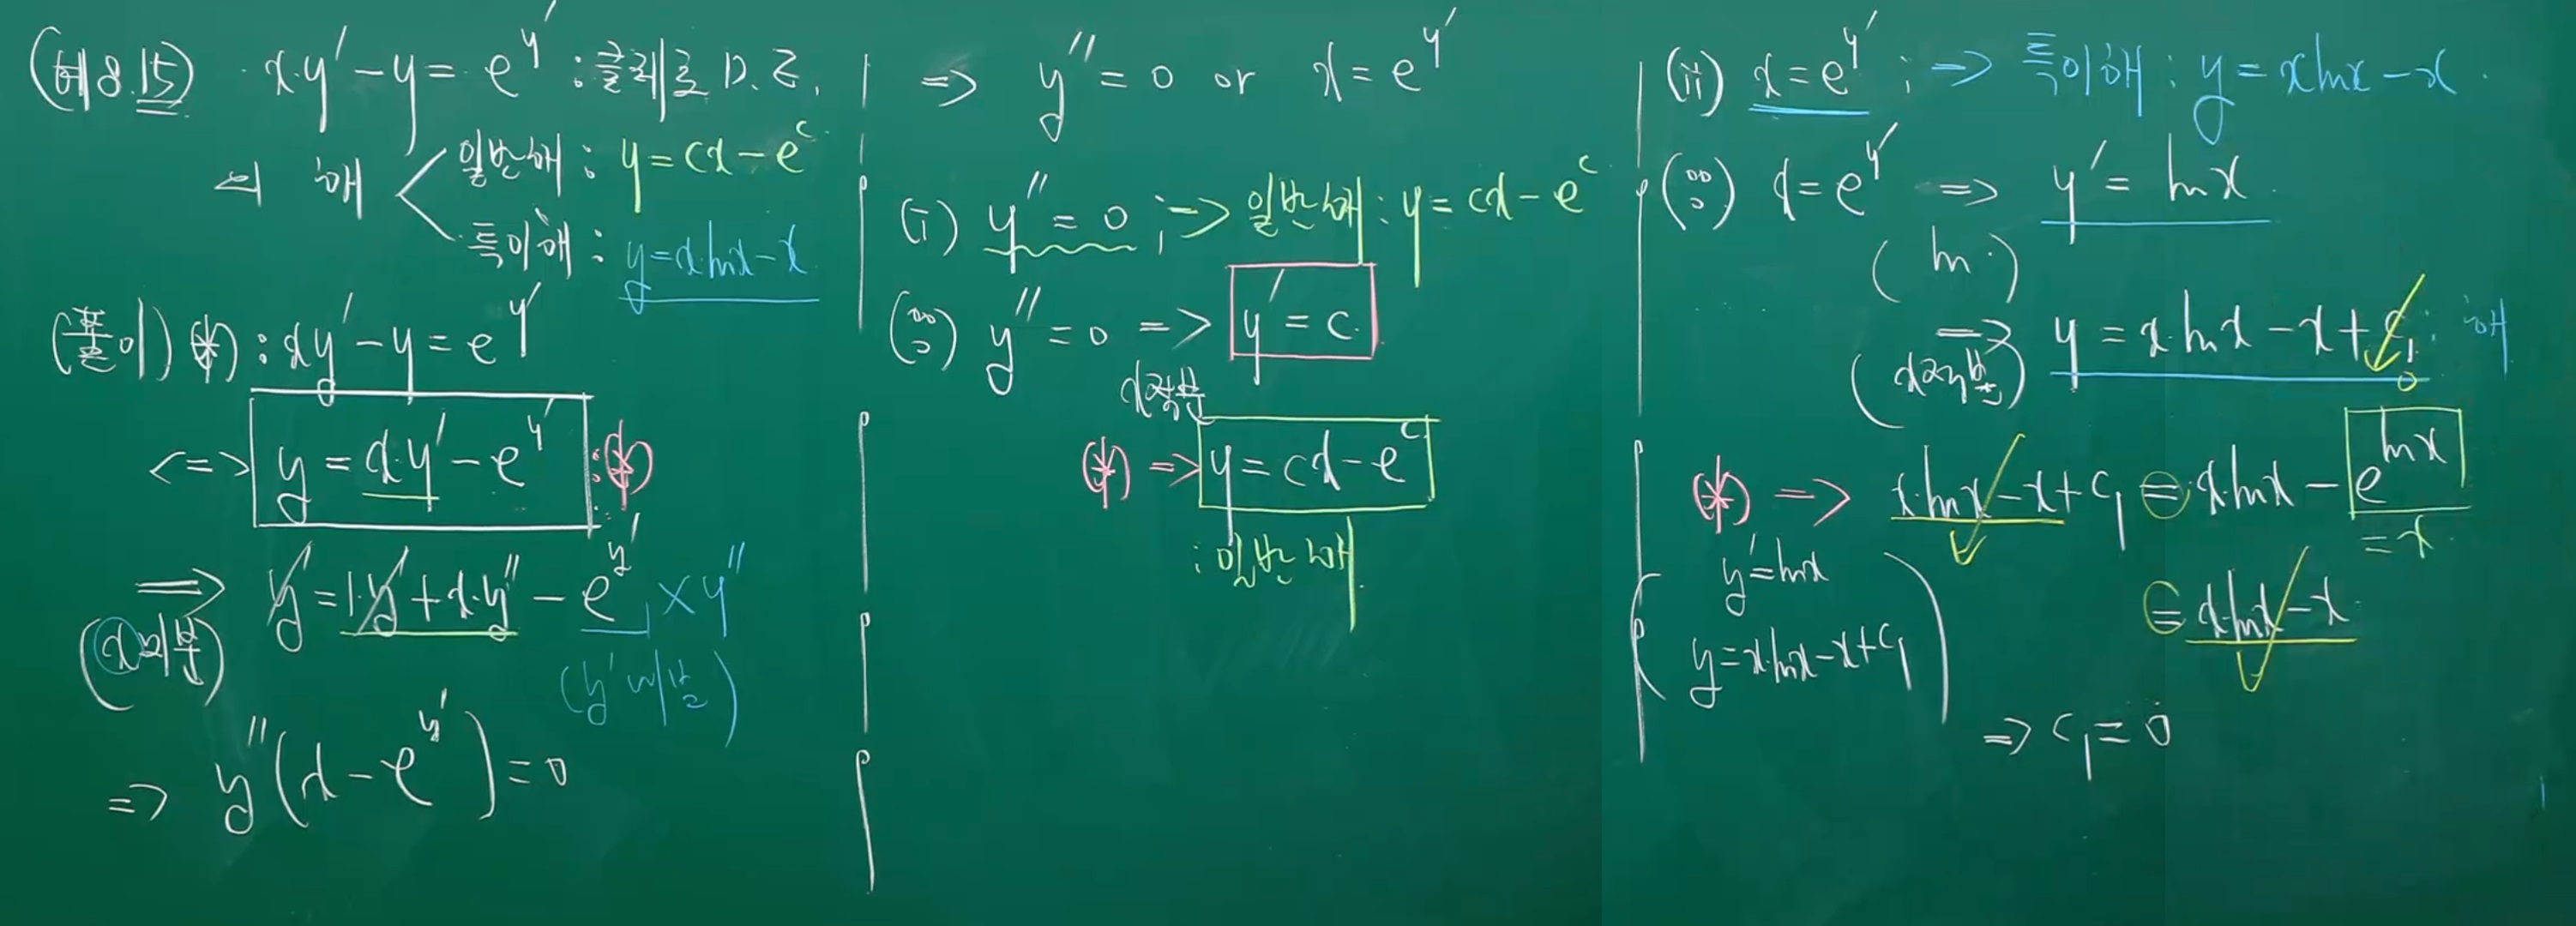 (예8.15) x·y′ − y = e^y′ : 클레로 D.E.
의 해
일반해 : y = cx − e^c
특이해 : y = x·lnx − x
(풀이) (*) : xy′ − y = e^y′
<=> y = x·y′ − e^y′ : (*)
=> y′ = 1·y′ + x·y″ − e^y′ × y″
(x미분)
(y′미분)
=> y″(x − e^y′) = 0
=> y″ = 0 or x = e^y′
(i) y″ = 0 ; => 일반해 : y = cx − e^c
(∵) y″ = 0 => y′ = c.
x적분
(*) => y = cx − e^c
: 일반해
(ii) x = e^y′ ; => 특이해 : y = xlnx − x.
(∵) x = e^y′ => y′ = lnx.
(ln·)
=> y = x·lnx − x + c₁ : 해
0
(x적분)
(*) => x·lnx − x + c₁ = x·lnx − e^lnx
= x
y′ = lnx
y = x·lnx − x + c₁
= x·lnx − x
=> c₁ = 0